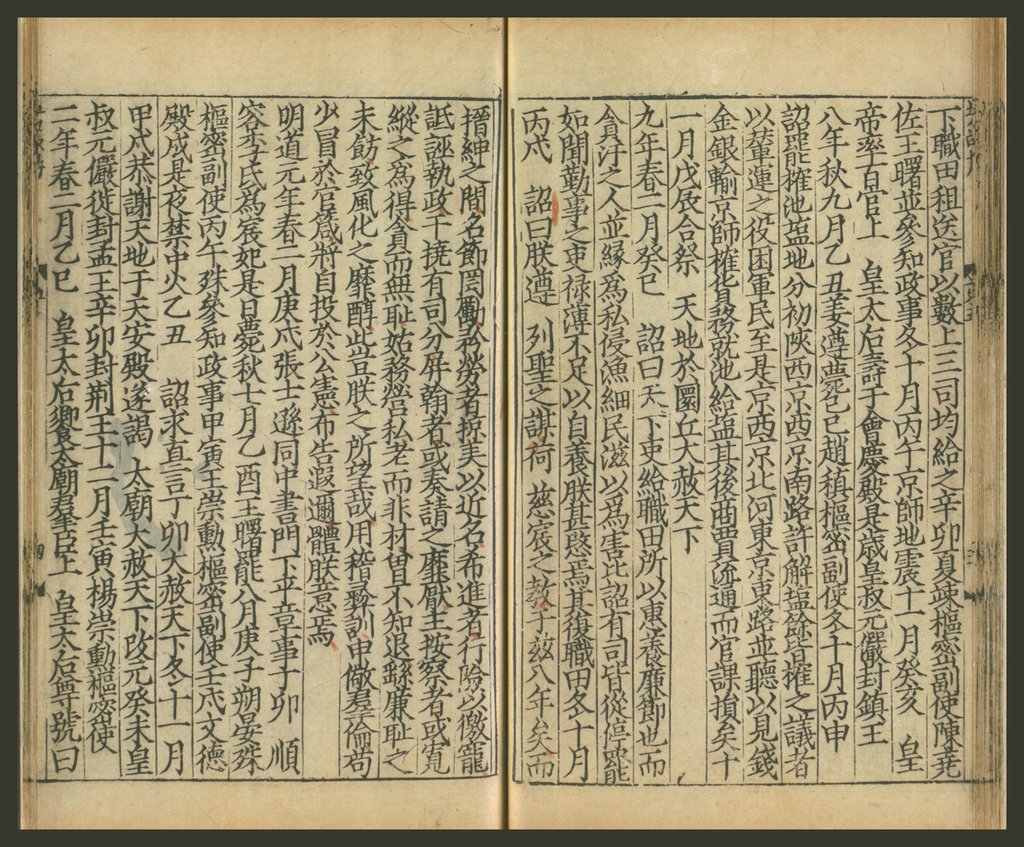 下職田租送官以數上三司均給之辛卯夏竦樞密副使陳堯
佐王曙並參知政事冬十月丙午京師地震十一月癸亥　皇
帝率百官上　皇太后壽于會慶殿是歳皇叔元儼封鎮王
八年秋九月乙丑姜遵薨己巳趙稹樞密副使冬十月丙申
詔罷搉池塩地分初陝西京西京南路許解塩餘皆搉之議者
以輦運之役困軍民至是京西京北河東京東路並聽以見錢
金銀輸京師搉貨務就池給塩其後商賈流通而官課損矣十
一月戊辰合祭　天地於圜丘大赦天下
九年春二月癸巳　詔曰天下吏給職田所以惠養廉節也而
貪汙之人並緣爲私侵漁細民滋以爲害比詔有司皆從停罷
如聞勤事之吏祿薄不足以自養朕甚愍焉其復職田冬十月
丙戌　詔曰朕遵　列聖之謀荷　慈扆之教于茲八年矣而
搢紳之間名節罔勵矜勞者掠美以近名希進者行險以徼寵
詆誣執政干撓有司分屏翰者或奏請之靡厭主按察者或寬
縱之爲得貪而無恥姑務營私老而非材曽不知退繇廉恥之
未飭致風化之靡醇此豈朕之所望哉用稽彝訓申儆羣倫苟
少冒於官箴將自投於公憲布告遐邇體朕意焉
明道元年春二月庚戌張士遜同中書門下平章事丁卯　順
容李氏爲宸妃是日薨秋七月乙酉王曙罷八月庚子朔晏殊
樞密副使丙午殊參知政事甲寅王崇勳樞密副使壬戌文德
殿成是夜禁中火乙丑　詔求直言丁卯大赦天下冬十一月
甲戌恭謝天地于天安殿遂謁　太廟大赦天下改元癸未皇
叔元儼徙封孟王辛卯封荆王十二月壬寅楊崇勳樞密使
二年春二月乙巳　皇太后饗太廟羣臣上　皇太后尊號曰